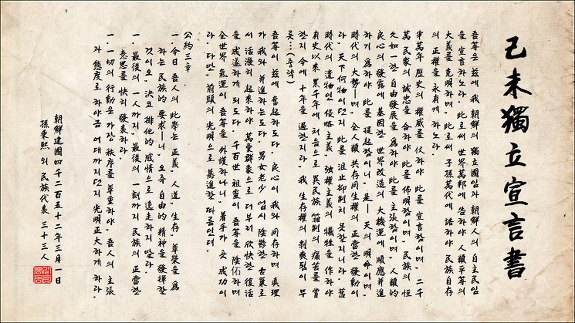 己未獨立宣言書
吾等은 玆에 我 朝鮮의 獨立國임과 朝鮮人의 自主民임
을 宣言하노라. 此로써 世界萬邦에 告하야 人類平等의
大義를 克明하며 此로써 子孫萬代에 誥하야 民族自存
의 正權을 永有케 하노라.
半萬年 歷史의 權威를 仗하야 此를 宣言함이며, 二千
萬 民衆의 誠忠을 合하야 此를 佈明함이며, 民族의 恒
久如一한 自由發展을 爲하야 此를 主張함이며, 人類的
良心의 發露에 基因한 世界改造의 大機運에 順應幷進
하기 爲하야 此를 提起함이니, 是ㅣ 天의 明命이며,
時代의 大勢ㅣ며, 全人類 共存同生權의 正當한 發動이
라, 天下何物이던지 此를 沮止抑制치 못할지니라. 舊
時代의 遺物인 侵略主義, 强權主義의 犧牲을 作하야
有史以來 累千年에 처음으로 異民族 箝制의 痛苦를 嘗
한지 今에 十年을 過한지라. 我 生存權의 剝喪됨이 무
릇…(중략)
吾等이 玆에 奮起하도다. 良心이 我와 同存하며 眞理
가 我와 幷進하는도다. 男女老少 업시 陰鬱한 古巢로
서 活潑히 起來하야 萬彙群象으로 더부러 欣快한 復活
을 成遂하게 되도다. 千百世 祖靈이 吾等을 陰佑하며
全世界 氣運이 吾等을 外護하나니, 着手가 곳 成功이
라. 다만, 前頭의 光明으로 驀進할 따름인뎌.
公約三章
一. 今日 吾人의 此擧는 正義, 人道, 生存, 尊榮을 爲
하는 民族的 要求ㅣ니 오즉 自由的 精神을 發揮할
것이오, 決코 排他的 感情으로 逸走하지 말라.
一. 最後의 一人까지, 最後의 一刻까지 民族의 正當한
意思를 快히 發表하라.
一. 一切의 行動은 가장 秩序를 尊重하야, 吾人의 主張
과 態度로 하야금 어대까지던지 光明正大하게 하라.
朝鮮建國四千二百五十二年三月一日
孫秉熙 외 民族代表 三十三人